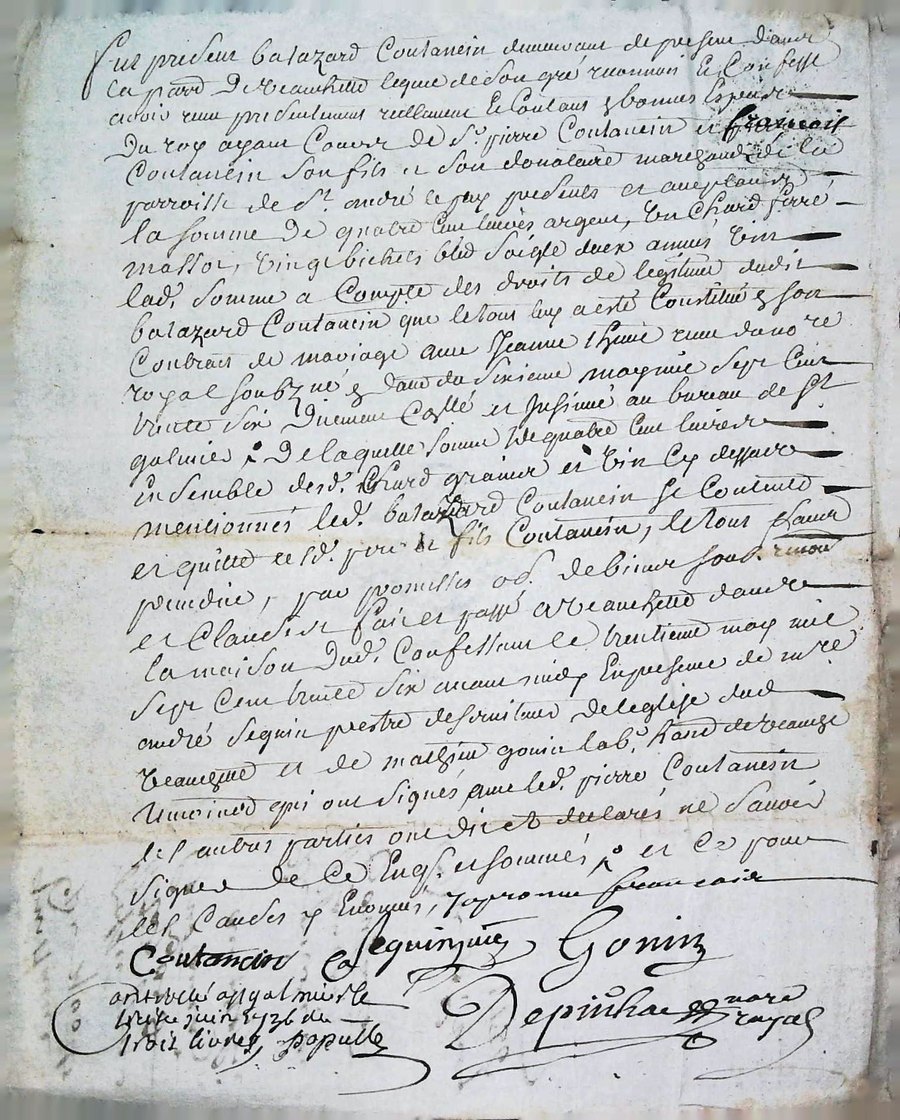 fut present balazard Coutancin demeurant de present dans
la parr. de veauchette lequel de son gré reconnoit et Confesse
avoir receu presentement reellement et Contant en bonnes especes
Du roy ayant Cours de Sr. pierre Coutancin et françois
Coutancin son fils et son donataire marchands de la
parroisse de St. andré le puy presents et acceptants
la somme de quatre cent livres argent, un Chard ferré
massot, vingt bichets bled soigle deux annés vin
lad. somme a Compte des droits de legitime dudit
balazard Coutancin que le tout luy a esté Constitué en son
Contrat de mariage avec Jeanne receu du nore
royal soubzné en datte du sixieme may mil sept cent
trente six Duement Collé et Insinué au bureau de St
galmier De laquelle somme de quatre cent livres
Ensemble desd. Chard grains et vin cy dessus
mentionnés led. balazard Coutancin se Contente
et quitte lesd. pere et fils Coutancin, le tout sans
prejudice, par promesses ob. de biens soub. renon
et Clauses fait et passé a veauchette dans
la maison dud. Confessant le trentieme may mil
sept Cent trente six avant midy En presence de mre
andré Seguin prestre desserviteur de leglise dud
veauchette et de mathieu gonin lab. hand de veauche
temoins qui ont signés avec led. pierre Coutancin
les autres parties ont dit et declarés ne sçavoir
signer de Ce Enqs. et sommés et Ce pour
les Causes y Enoncés, françois
Coutancin Seguin Gonin
Controllé a St galmier le
juin 1736 de Depinhac nore
trois livres, royal